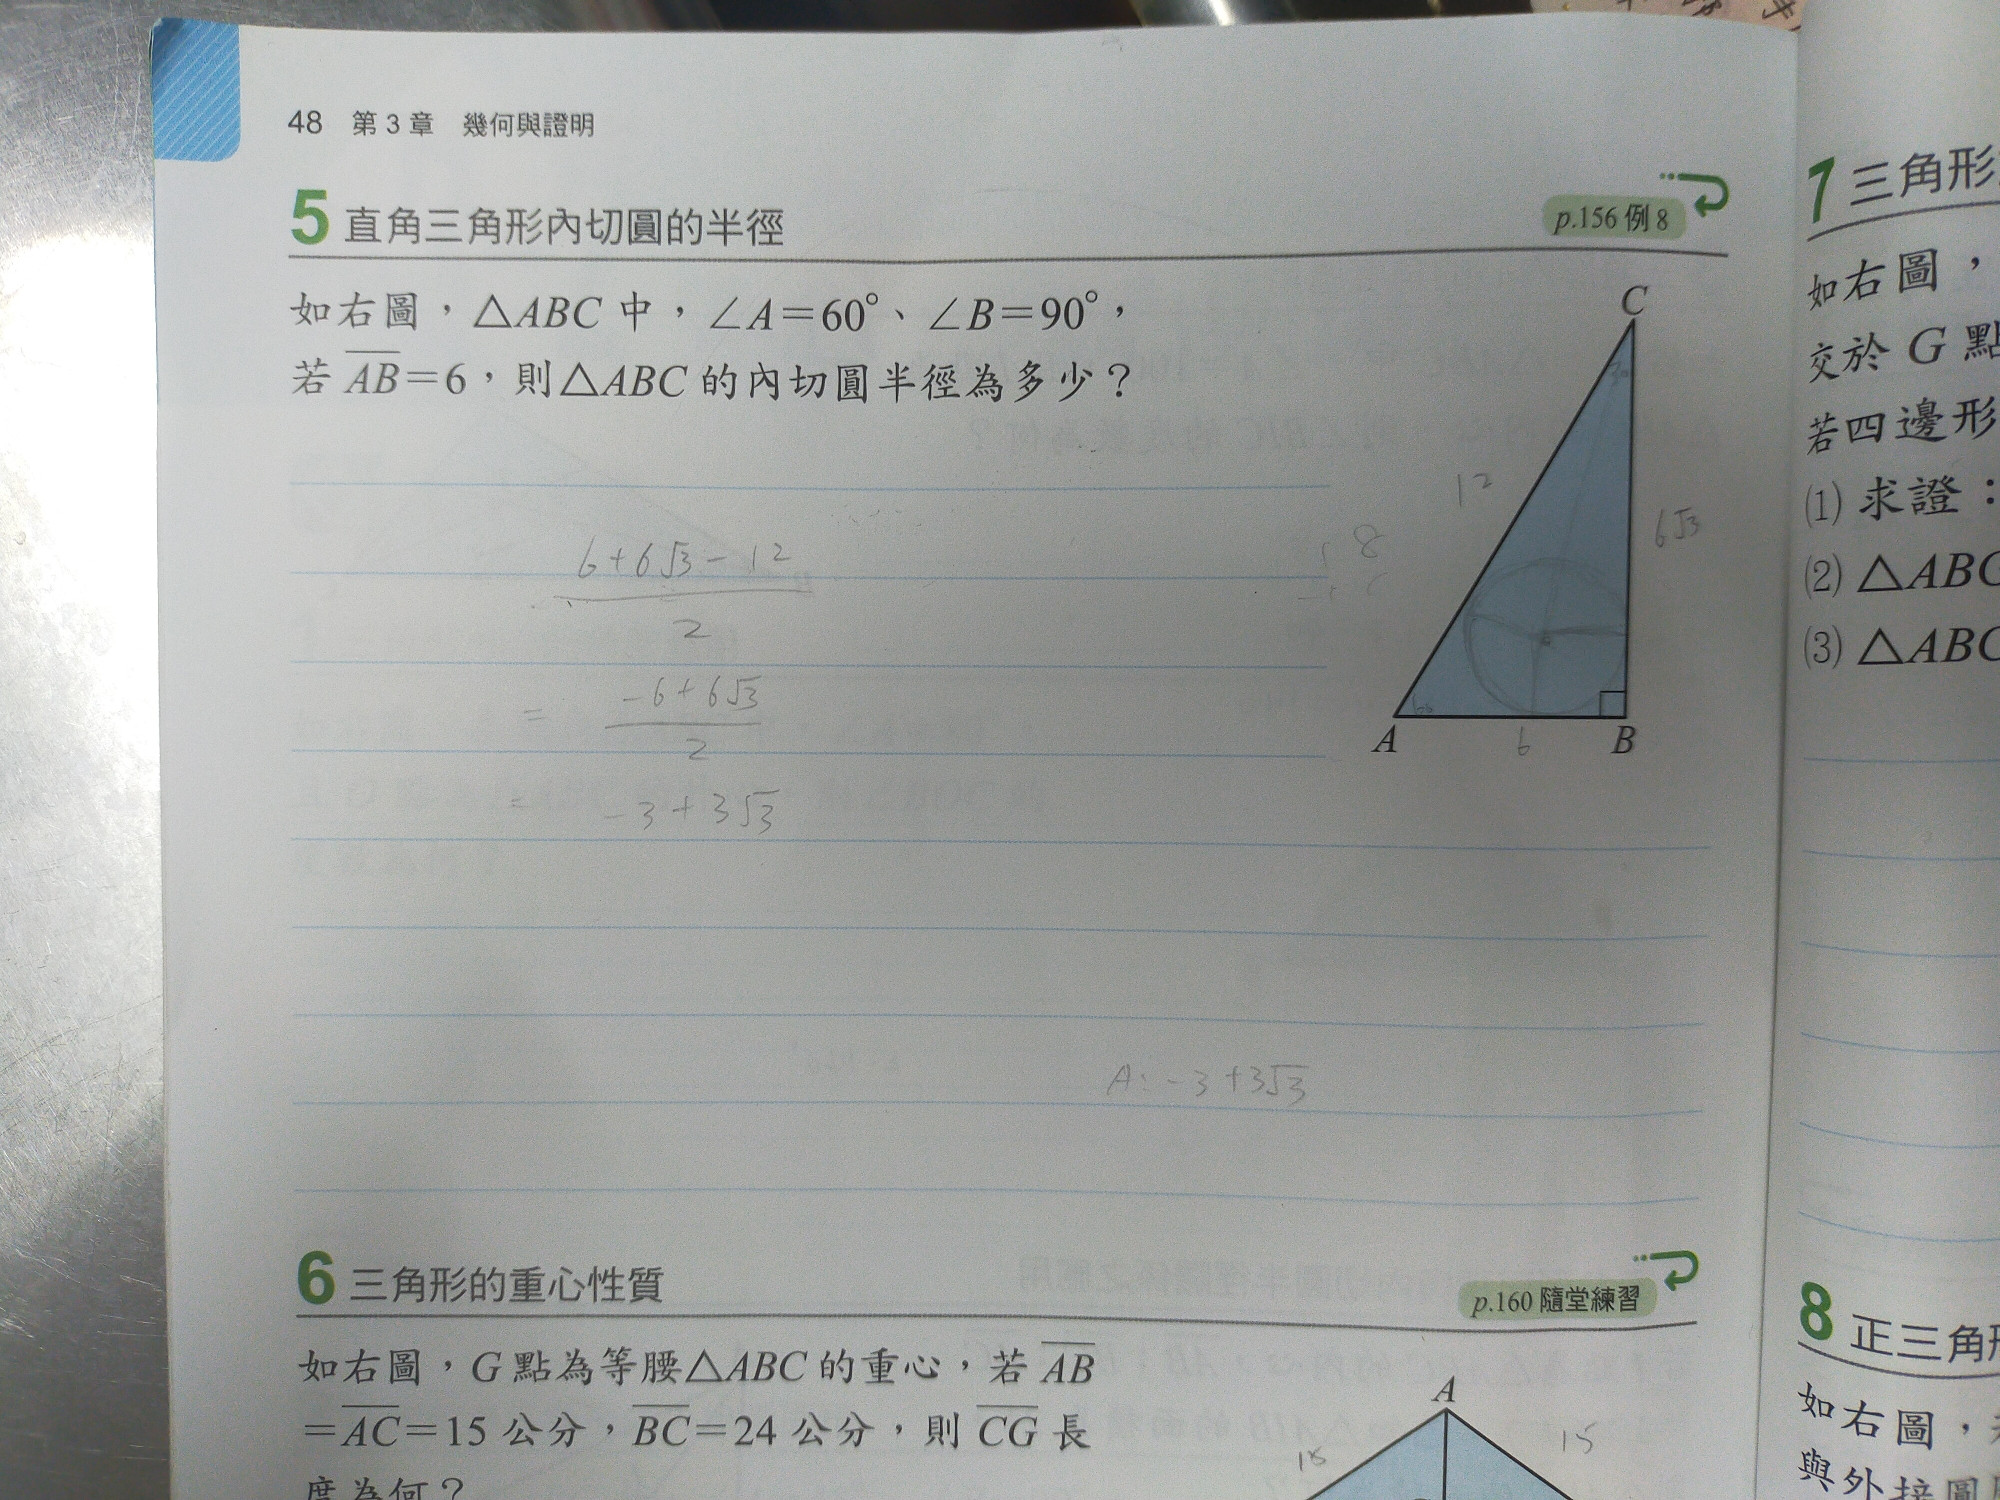 48 第3章 幾何與證明
5 直角三角形內切圓的半徑
p.156 例 8
如右圖，△ABC 中，∠A=60°、∠B=90°，
若 AB=6，則△ABC 的內切圓半徑為多少？
C
12
6√3
A
6
B
6+6√3-12
2
= -6+6√3
2
= -3+3√3
A:-3+3√3
6 三角形的重心性質
p.160 隨堂練習
如右圖，G 點為等腰△ABC 的重心，若 AB
=AC=15 公分，BC=24 公分，則 CG 長
度為何？
A
15
15
7 三角形
如右圖，
交於 G 點
若四邊形
(1) 求證：
(2) △ABC
(3) △ABC
8 正三角形
如右圖，
與外接圓